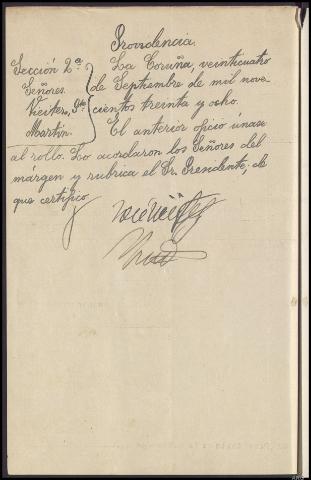 Providencia.
Sección 2ª La Coruña, veinticuatro
Señores. de Septiembre de mil nove-
Vieites, Pte cientos treinta y ocho.
Martín. El anterior oficio únase
al rollo. Lo acordaron los Señores del
márgen y rubrica el Sr. Presidente, de
que certifico